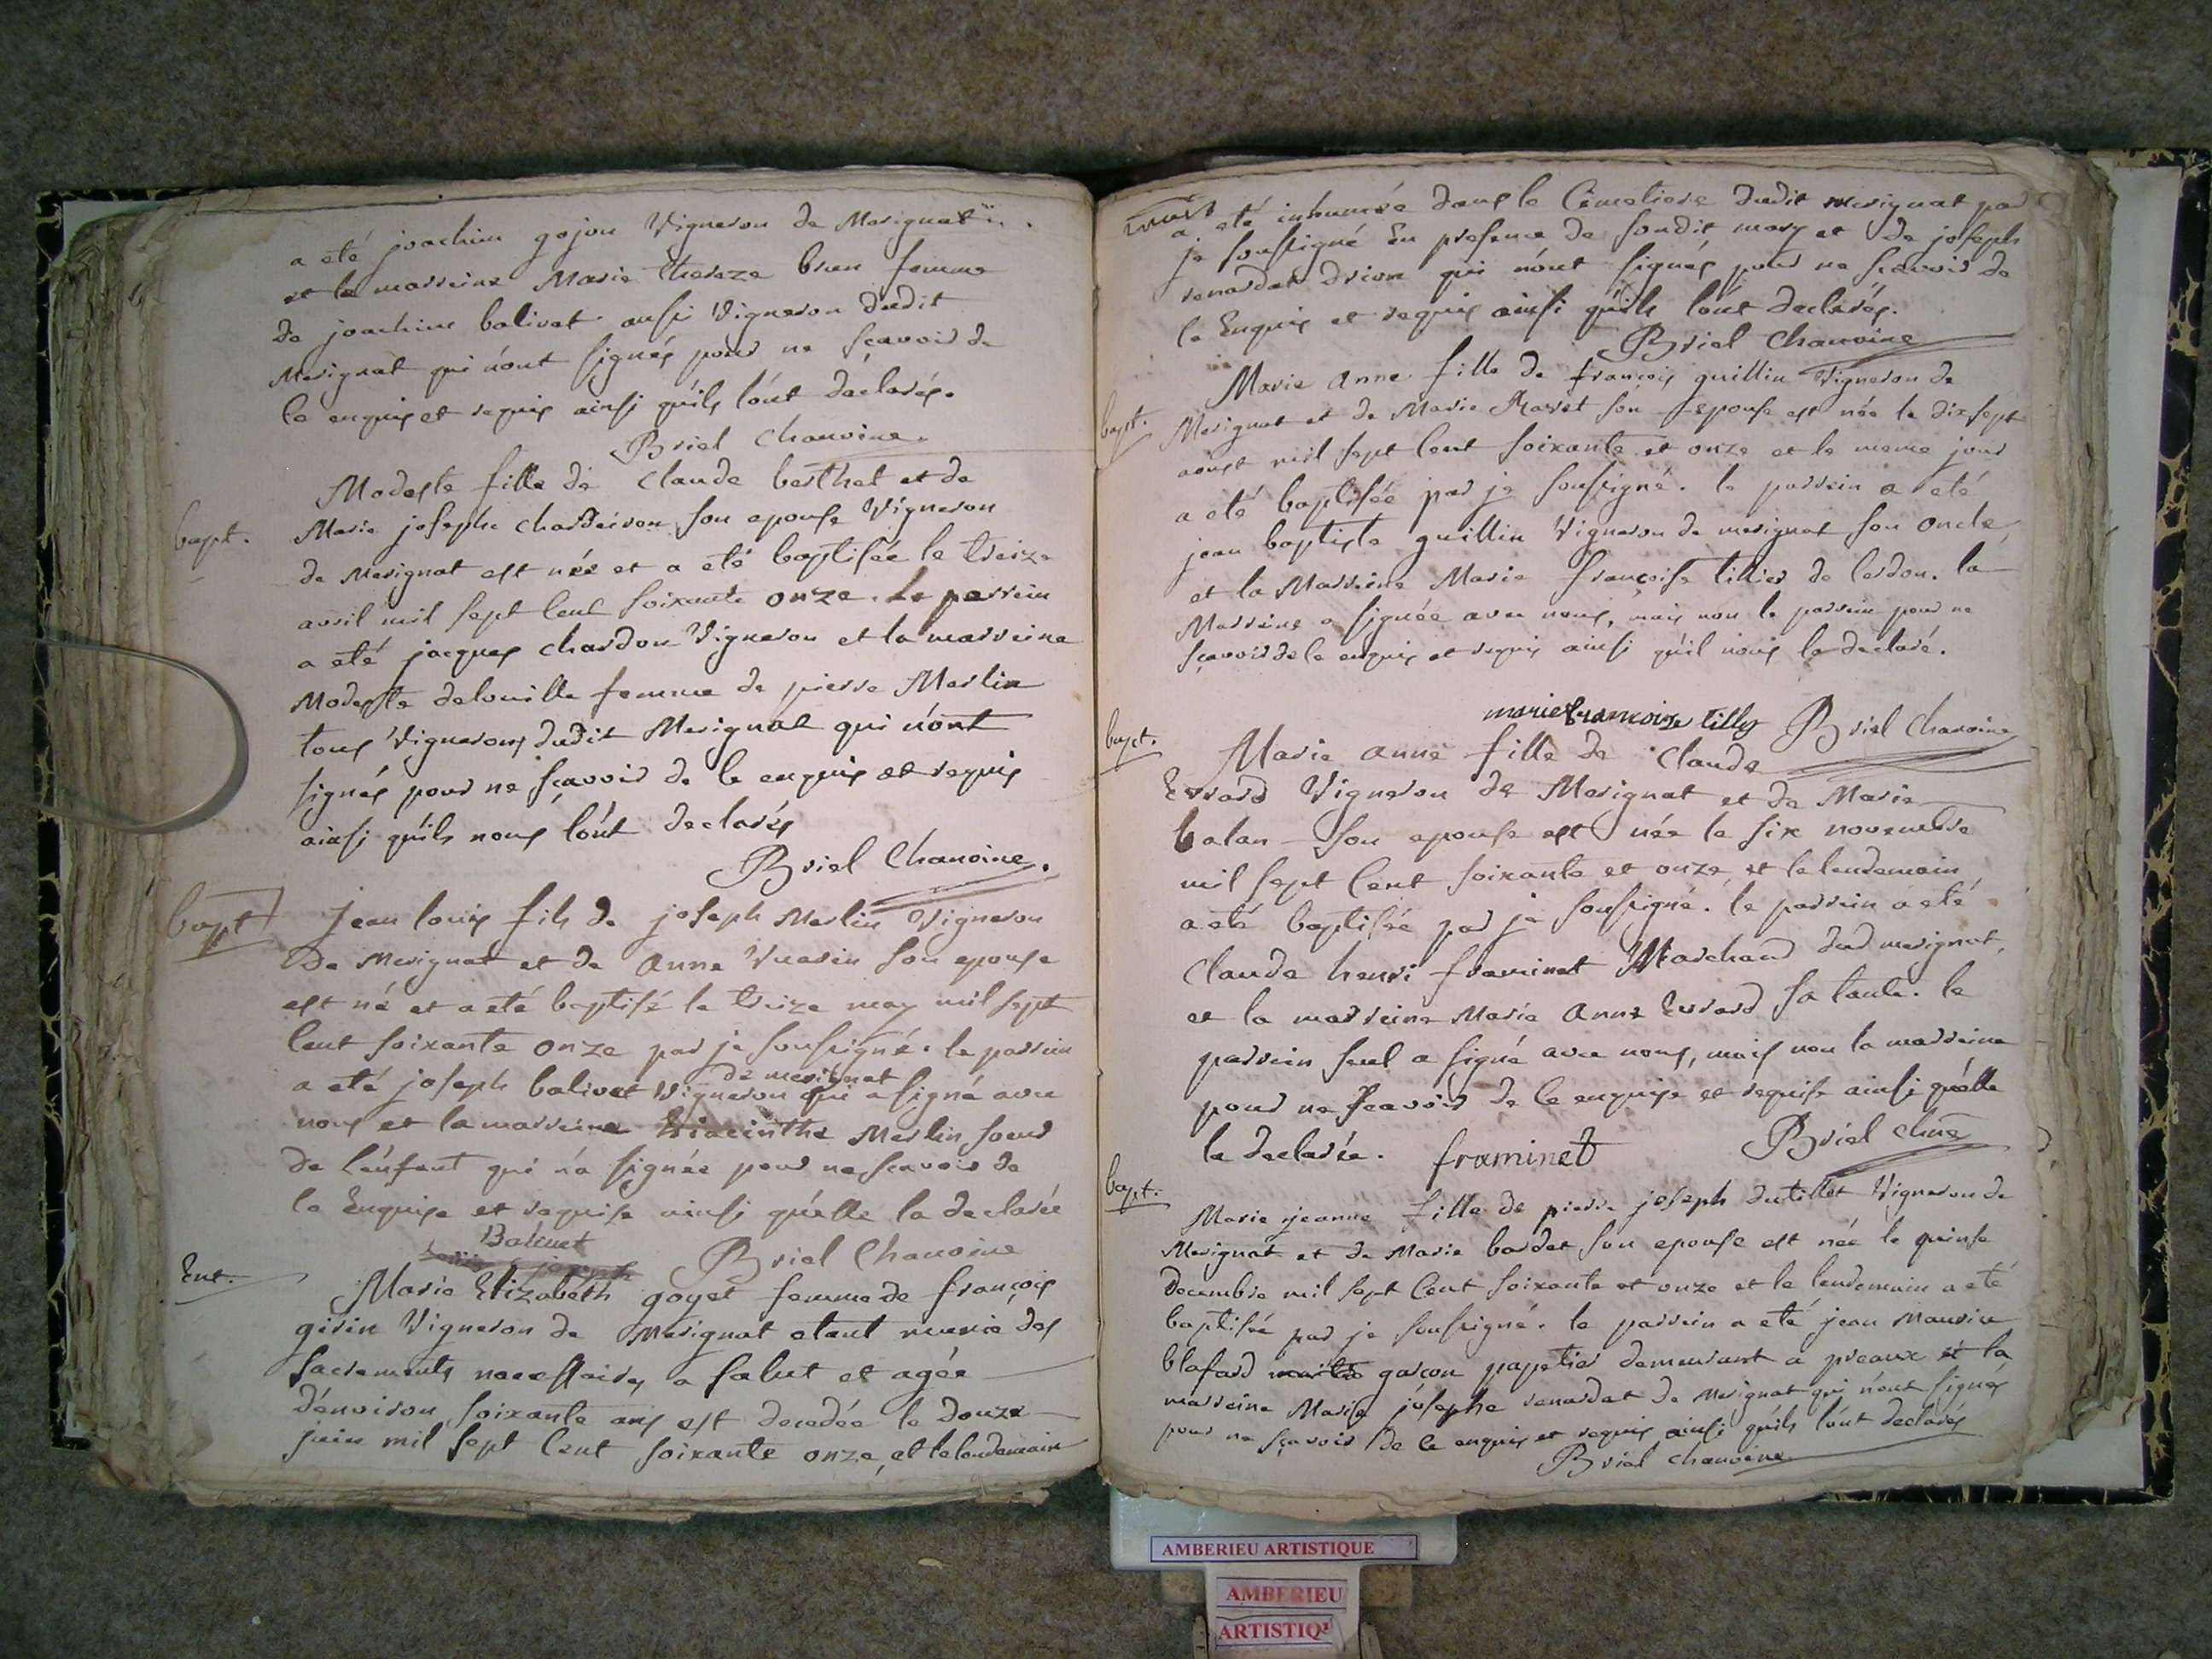 a eté joachim gojon Vigneron de Merignat
et la marreine Marie thereze brun femme
de joachim balivet aussi Vigneron dudit
Merignat qui n'ont signés pour ne sçavoir de
ce enquis et requis ainsi qu'ils l'ont déclarés.
Briel Chanoine.
bapt.
Modeste fille de Claude berthet et de
Marie josephe chardeiron son epouse Vigneron
de Merignat est née et a eté baptisée le treize
avril mil sept Cent soixante onze. Le parrein
a eté jacques chardon Vigneron et la marreine
Modeste delouille femme de pierre Merlin
tous Vignerons dudit Merignat qui n'ont
signés pour ne sçavoir de ce enquis et requis
ainsi qu'ils nous l'ont declarés
Briel Chanoine.
bapt
Jean louis fils de joseph Merlin Vigneron
De Merignat et de Anne Vuarin son epouse
est né et a eté baptisé le treize may mil sept
Cent soixante onze par je soussigné. le parrein
de merignat
a eté joseph balivet Vigneron qui a signé avec
nous et la marreine hiacinthe Merlin soeur
de l'enfant qui n'a signée pour ne sçavoir de
ce Enquise et requise ainsi qu'elle la declarée
Balivet
Briel Chanoine
Ent.
Marie Elizabeth goyet femme de françois
girin Vigneron de Merignat etant munie des
sacrements necessaires a salut et agée
d'environ soixante ans est decedée le douze
juin mil sept Cent soixante onze, et le lendemain
a eté inhumée dans le Cimetiere dudit merignat par
je soussigné En presence de sondit mary et de joseph
renardat drion qui n'ont signés pour ne sçavoir de
ce Enquis et requis ainsi qu'ils l'ont declarés.
Briel Chanoine
bapt.
Marie Anne fille de françois guillin Vigneron de
Merignat et de Marie Ravet son epouse est née le dix sept
aoust mil sept Cent soixante et onze et le meme jour
a été baptisée par je soussigné. le parrein a eté
jean baptiste guillin Vigneron de merignat son oncle,
et la Marreine Marie françoise tillier de Cerdon. la
Marreine a signée avec nous, mais non le parrein pour ne
sçavoir de ce enquis et requis ainsi qu'il nous la declaré.
marie francoise tilly Briel Chanoine
bapt.
Marie anne fille de Claude
Evrard Vigneron de Merignat et de Marie
balan son epouse est née le six novembre
mil sept Cent soixante et onze et le lendemain
a eté baptisée par je soussigné. le parrein a eté
Claude henri framinet Marchand dud merignat,
et la marreine Marie Anne Evrard sa tante. le
parrein seul a signé avec nous, mais non la marreine
pour ne sçavoir de ce enquise et requise ainsi qu'elle
la declarée. framinet Briel chne
bapt.
Marie jeanne fille de pierre joseph dutillet Vigneron de
Merignat et de Marie bardet son epouse est née le quinse
decembre mil sept Cent soixante et onze et le lendemain a eté
baptisée par je soussigné. le parrein a eté jean Maurice
blafard garçon papetier demeurant a preaux et la
marreine Marie josephe renardat de Merignat qui n'ont signés
pour ne sçavoir de ce enquis et requis ainsi qu'ils l'ont declarés
Briel chanoine
AMBERIEU ARTISTIQUE
AMBERIEU
ARTISTIQ